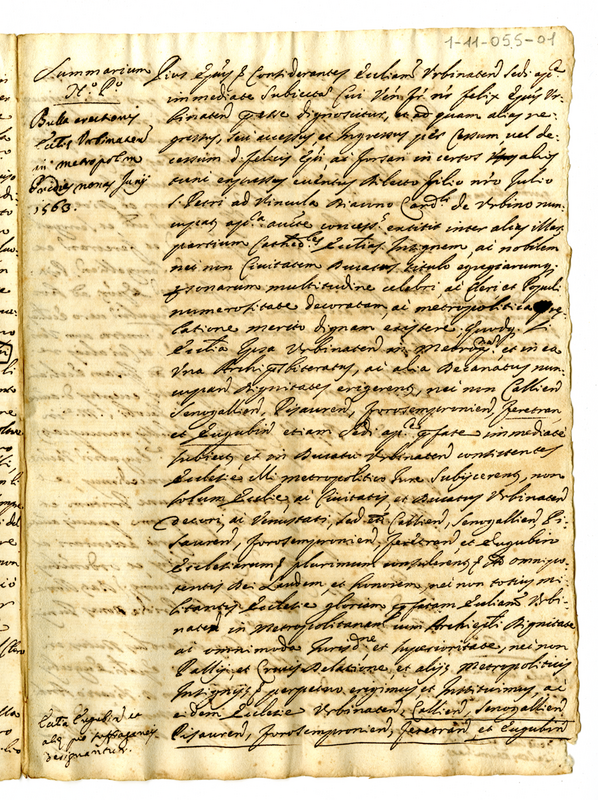 1-11-055-01
Summarium
N.º P.º
Bulla erectionis
Eccl. Urbinaten
in metropolim
Pridie nonas Junij
1563.
Pius Epûs &c. Considerantes Eccliam Urbinaten Sedi
immediate Subiectam Cui Ven. Fr. nr Felix Epûs Ur-
binaten præesse dignoscitur, et ad quam alias re-
gressus, seu accessus et Ingressus per Cessum vel de-
cessum d. Felicis Epi, ac forsan in certos alios
tunc expressos eventus Dilecto filio nro Julio
S. Petri ad Vincula Diacono Card. de Urbino nun-
cupat, ap.ca aucte concess. extitit inter alias illar
partium Cathed.les Ecclias Insignem, ac nobilem
nec non Civitatem Ducatus titulo egregiarumq.
psonarum multitudine celebri ac Cleri et Populi
numerositate decoratam, ac metropolitica
latione merito dignam existere Quodq. Si
Ecclia Ipsa Urbinaten in Metrop.nam, et in ea
Una Archipbiteratus, ac alia Decanatus nun-
cupan Dignitates erigerent, nec non Callien
Senogallien, Pisauren, Forosempronien, Feretran
et Eugubin etiam Sedi ap.ce pfate immediate
subiect, et in Ducatu Urbinaten consistentes
Ecclesiæ illi metropolitico Jure Subijcerent, non
solum Ecclie, ac Civitatis et Ducatus Urbinaten
Decori, ac Venustati, sed et Callien, Senogallien Pi-
sauren, Forosempronien, Feretran, et Eugubin
Ecclesiarum plurimum consuleret, omnipo-
tentis Dei Laudem, et honorem nec non totius mi-
litantis Ecclesiæ gloriam pfatam Ecclian Urbi-
naten in Metropolitanam cum Archiepli Dignitate
ac omnimoda Jurisd.ne et superioritate, nec non
Pallij, et Crucis Delatione, et alijs Metropoliticis
Insignijs perpetuo erigimus et Instituimus, ac
eidem Ecclesiæ Urbinaten, Callien, Senogallien
Pisauren, Forosempronien, Feretran et Eugubin
Ecclia Eugubin et
aliæ pro suffraganeis
designantur.